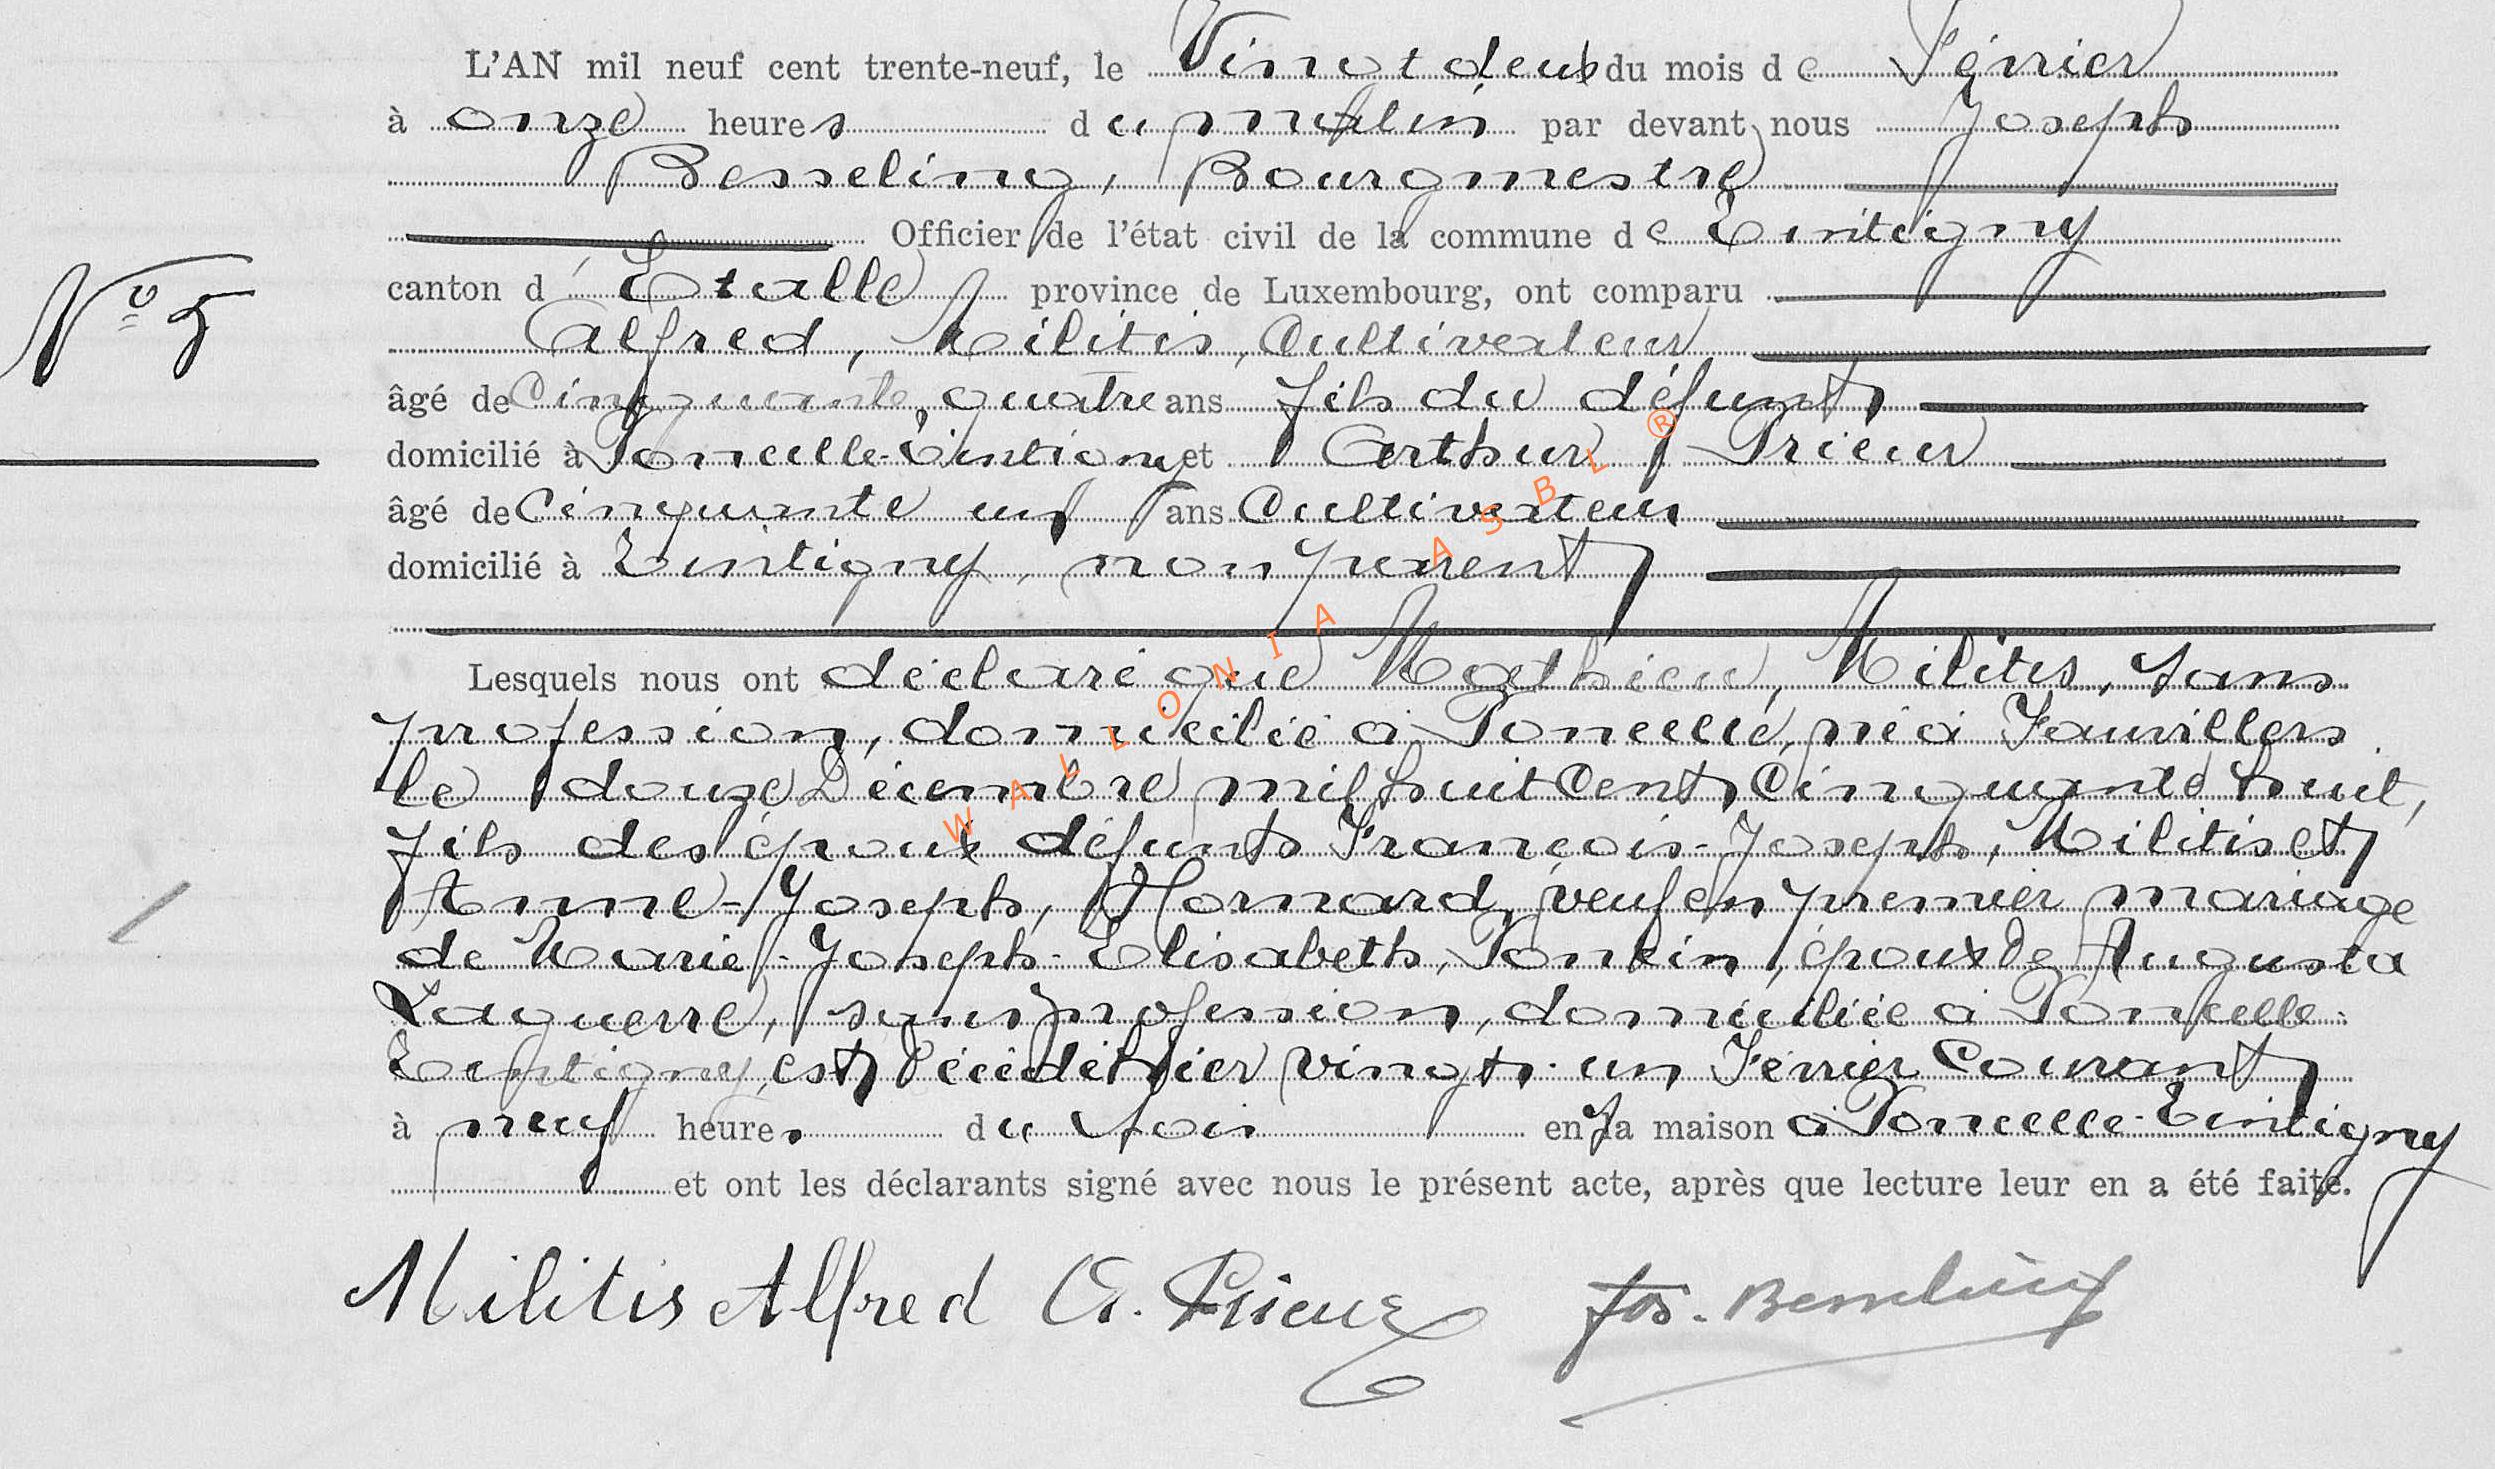 L'AN mil neuf cent trente-neuf, le Vingt deux du mois de Février
à onze heures du matin par devant nous Joseph
Besseling, Bourgmestre
Officier de l'état civil de la commune de Tintigny
canton d'Etalle province de Luxembourg, ont comparu
N° 5
Alfred, Militis, Cultivateur
âgé de Cinquante quatre ans fils du défunt
domicilié à Poncelle-Tintigny et Arthur Prieur
âgé de Cinquante un ans Cultivateur
domicilié à Tintigny, non parent
Lesquels nous ont déclaré que Mathieu, Militis, sans
profession, domicilié à Poncelle, né à Fauvillers
le douze Décembre mil huit Cent Cinquante huit,
fils des époux défunts François-Joseph, Militis et
Anne-Joseph, Hornard, veuf en premier mariage
de Marie-Joseph-Elisabeth, Ponkin, époux de Augusta
Laguerre, sans profession, domiciliée à Poncelle-
Tintigny, est décédé hier vingt-un Février Courant
à neuf heures du soir en sa maison à Poncelle-Tintigny
et ont les déclarants signé avec nous le présent acte, après que lecture leur en a été faite.
Militis Alfred A. Prieur Jos. Besseling
WALLONIA ASBL ®